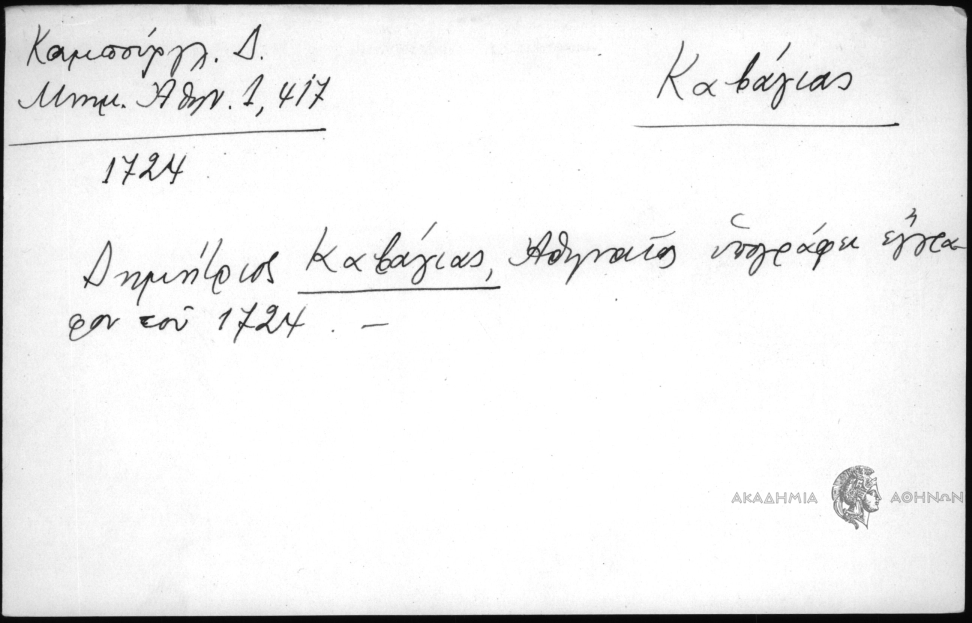 Καμπούργλ. Δ.
Μνημ. Ἀθην. 1, 417
1724
Καβάγιας
Δημήτριος Καβάγιας, Ἀθηναῖος ὑπογράφει ἔγγρα-
φον τοῦ 1724. —
ΑΚΑΔΗΜΙΑ ΑΘΗΝΩΝ